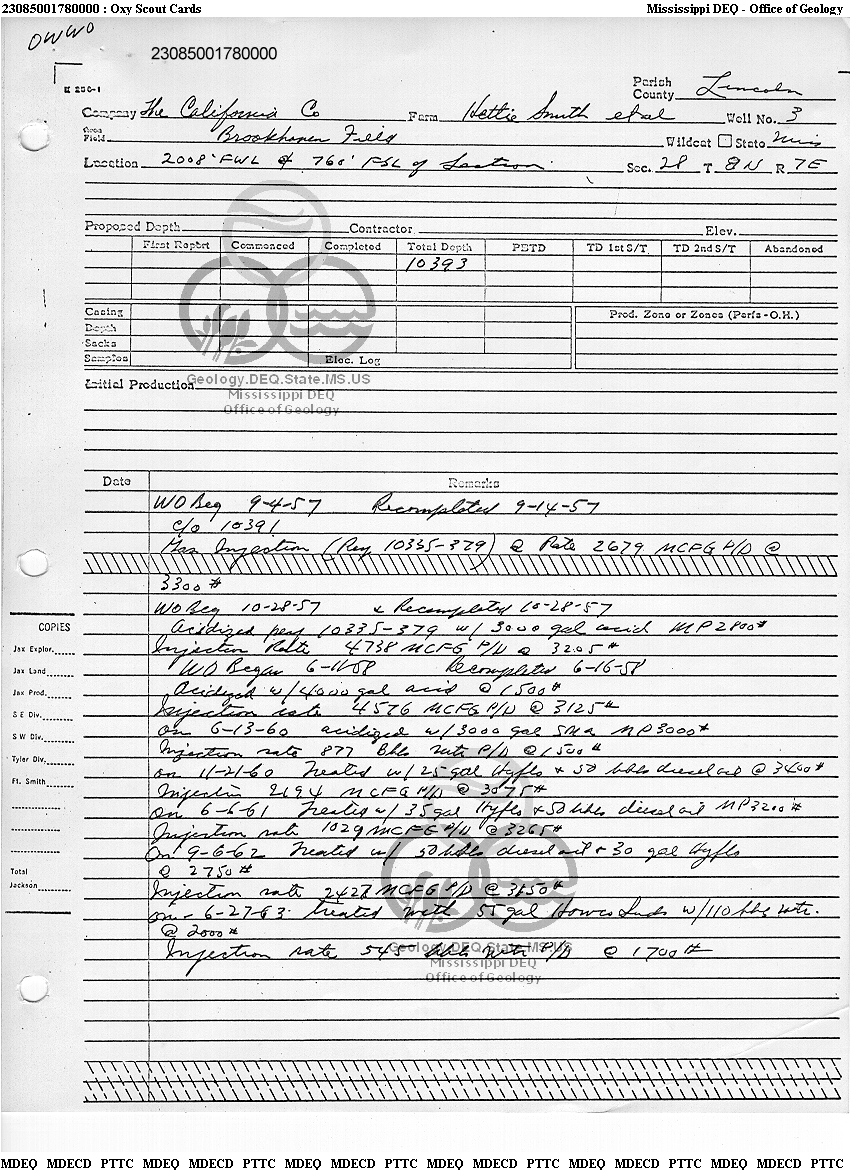 23085001780000 : Oxy Scout Cards Mississippi DEQ - Office of Geology
OWWO
23085001780000
Parish
County Lincoln
Company The California Co Farm Hettie Smith et al Well No. 3
Area
Field Brookhaven Field Wildcat State Miss
Location 2008' FWL & 760' FSL of Section Sec. 28 T 8N R 7E
Proposed Depth Contractor Elev.
First Report Commenced Completed Total Depth PBTD TD 1st S/T TD 2nd S/T Abandoned
10393
Casing Prod. Zone or Zones (Perfs - O.H.)
Depth
Sacks
Samples Elec. Log
Initial Production
Geology.DEQ.State.MS.US
Mississippi DEQ
Office of Geology
Date Remarks
WO Beg 9-4-57 Recompleted 9-14-57
c/o 10391
Injection (Perf 10335-379) @ Rate 2679 MCFG P/D @
3300 #
WO Beg 10-28-57 & Recompleted 10-28-57
Acidized perf 10335-379 w/ 3000 gal acid MP 2800#
Injection Rate 4738 MCFG P/D @ 3205#
WO Began 6-11-58 Recompleted 6-16-58
Acidized w/4000 gal acid @ 1500#
Injection rate 4576 MCFG P/D @ 3125#
On 6-13-60 acidized w/3000 gal MP3000#
Injection rate 877 Bbls wtr P/D @ 1500#
On 11-21-60 Treated w/25 gal Hyflo + 50 bbls diesel oil @ 3400#
Injection 2694 MCFG P/D @ 3075#
On 6-6-61 Treated w/ 35 gal Hyflo + 50 bbls diesel oil MP3200#
Injection rate 1029 MCFG P/D @ 3265#
On 9-6-62 Treated w/ 50 bbls diesel oil + 30 gal Hyflo
@ 2750#
Injection rate 2427 MCFG P/D @ 3650#
on - 6-27-63 treated with 55 gal Howco Suds w/110 bbl wtr.
@ 2000#
Injection rate 545 bbls wtr P/D @ 1700#
Geology.DEQ.State.MS.US
Mississippi DEQ
Office of Geology
COPIES
Jax Explor.
Jax Land
Jax Prod.
S E Div.
S W Div.
Tyler Div.
Ft. Smith
Total
Jackson
MDEQ MDECD PTTC MDEQ MDECD PTTC MDEQ MDECD PTTC MDEQ MDECD PTTC MDEQ MDECD PTTC MDEQ MDECD PTTC